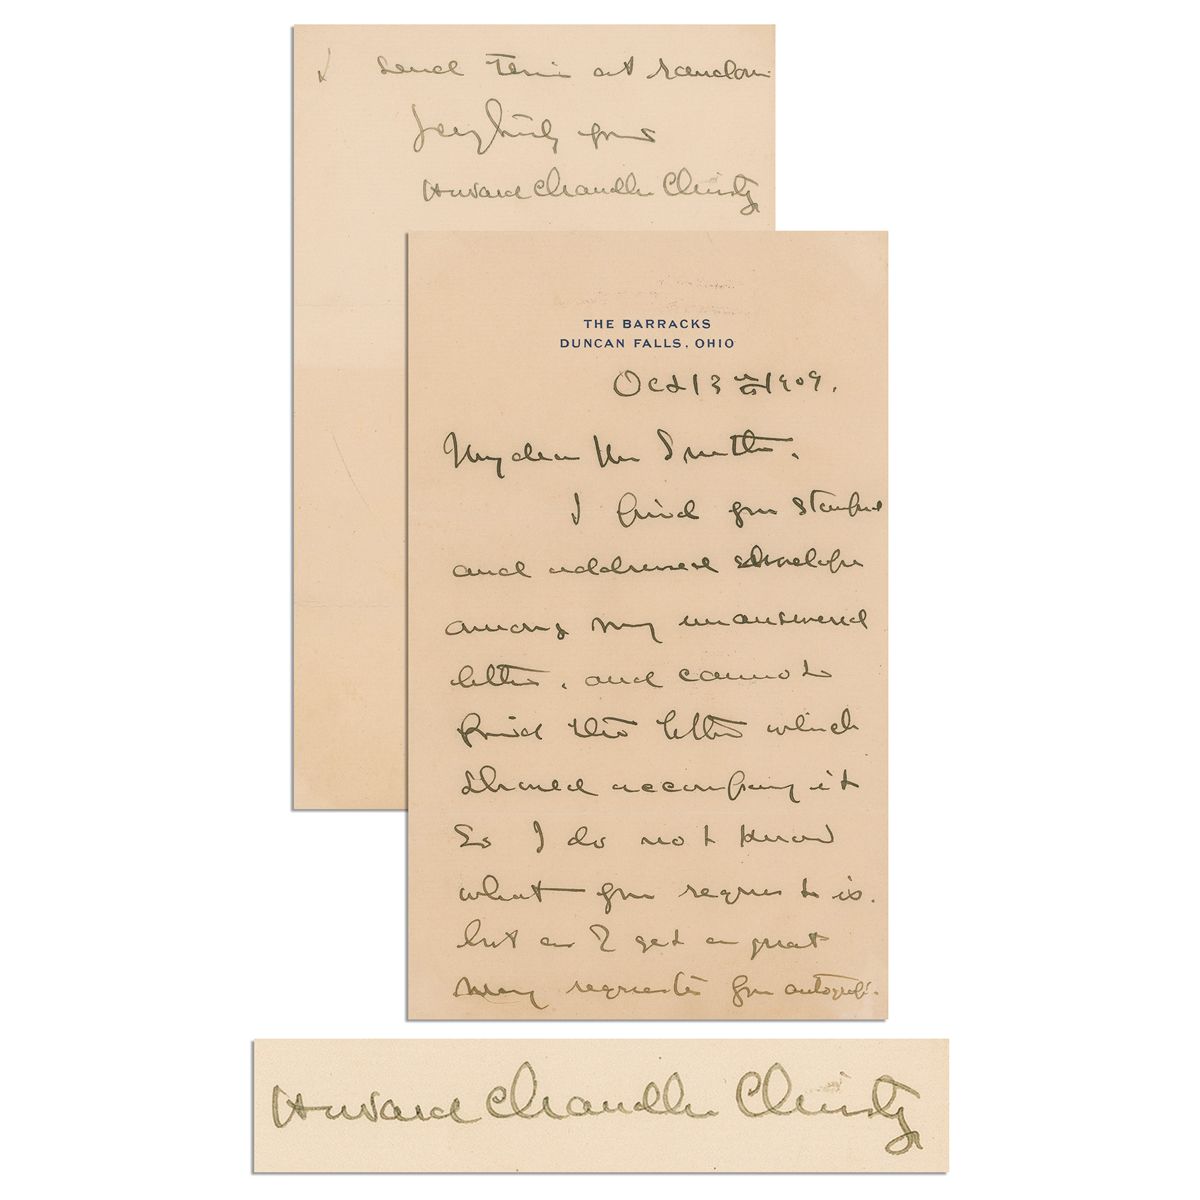 THE BARRACKS
DUNCAN FALLS, OHIO
Oct 13 1909.
My dear Mr Smith.
I find your stamped
and addressed envelope
among my unanswered
letters. and cannot
find the letter which
should accompany it
So I do not know
what your request is.
but as I get a great
many requests for autographs.
I send this at random
Very truly yours
Howard Chandler Christy
Howard Chandler Christy